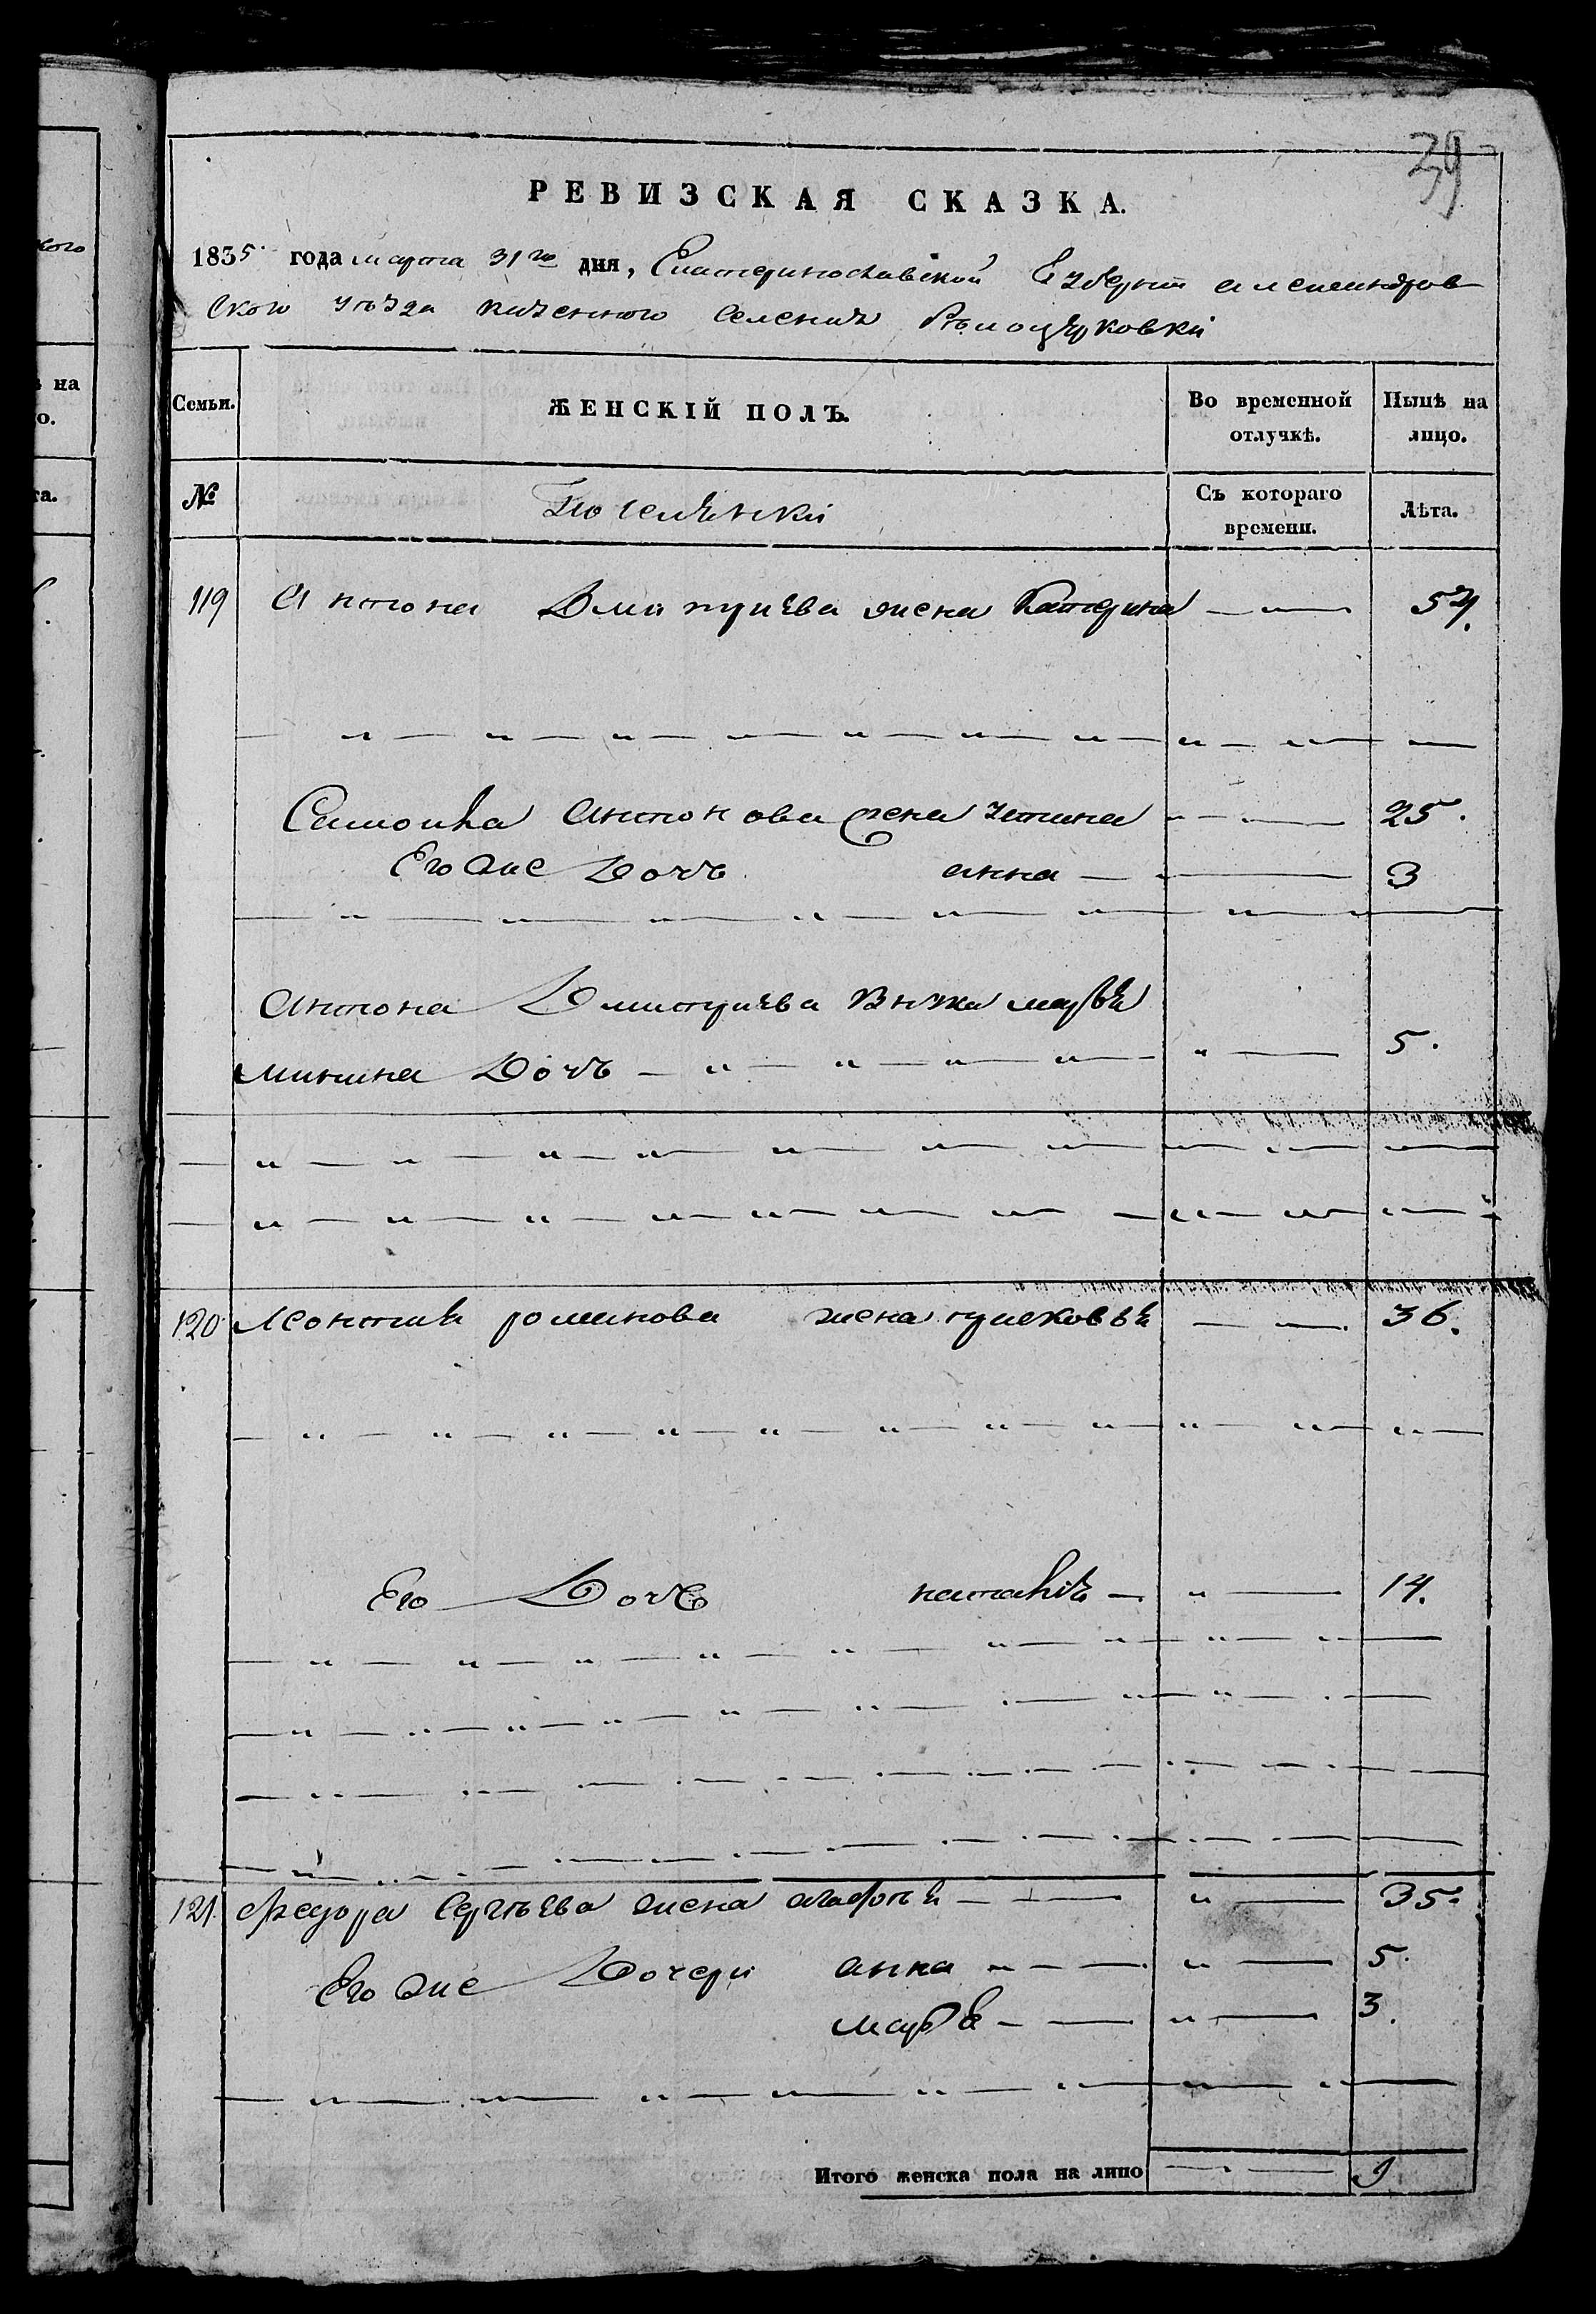 39
РЕВИЗСКАЯ СКАЗКА.
1835 года марта 31го дня, Екатеринославской Губернии александров
ского уѣзда казенного селения Бѣлоцерковки
Семьи.
ЖЕНСКІЙ ПОЛЪ.
Во временной отлучкѣ.
Нынѣ на лицо.
№
Съ котораго времени.
Лѣта.
119 Антона Дмитриева жена Катерина 54.
Самойла Антонова жена 25.
Его же Дочь анна 3
Антона Дмитриева внука марфа
минина Дочь 5.
120 Леонтия романова жена 36.
Его Дочь наталия 14.
121. Федора Сергѣева жена агафия 35.
Его же Дочери анна 5.
марфа 3.
Итого женска пола на лицо 9
ского
ѣ на
о.
та.